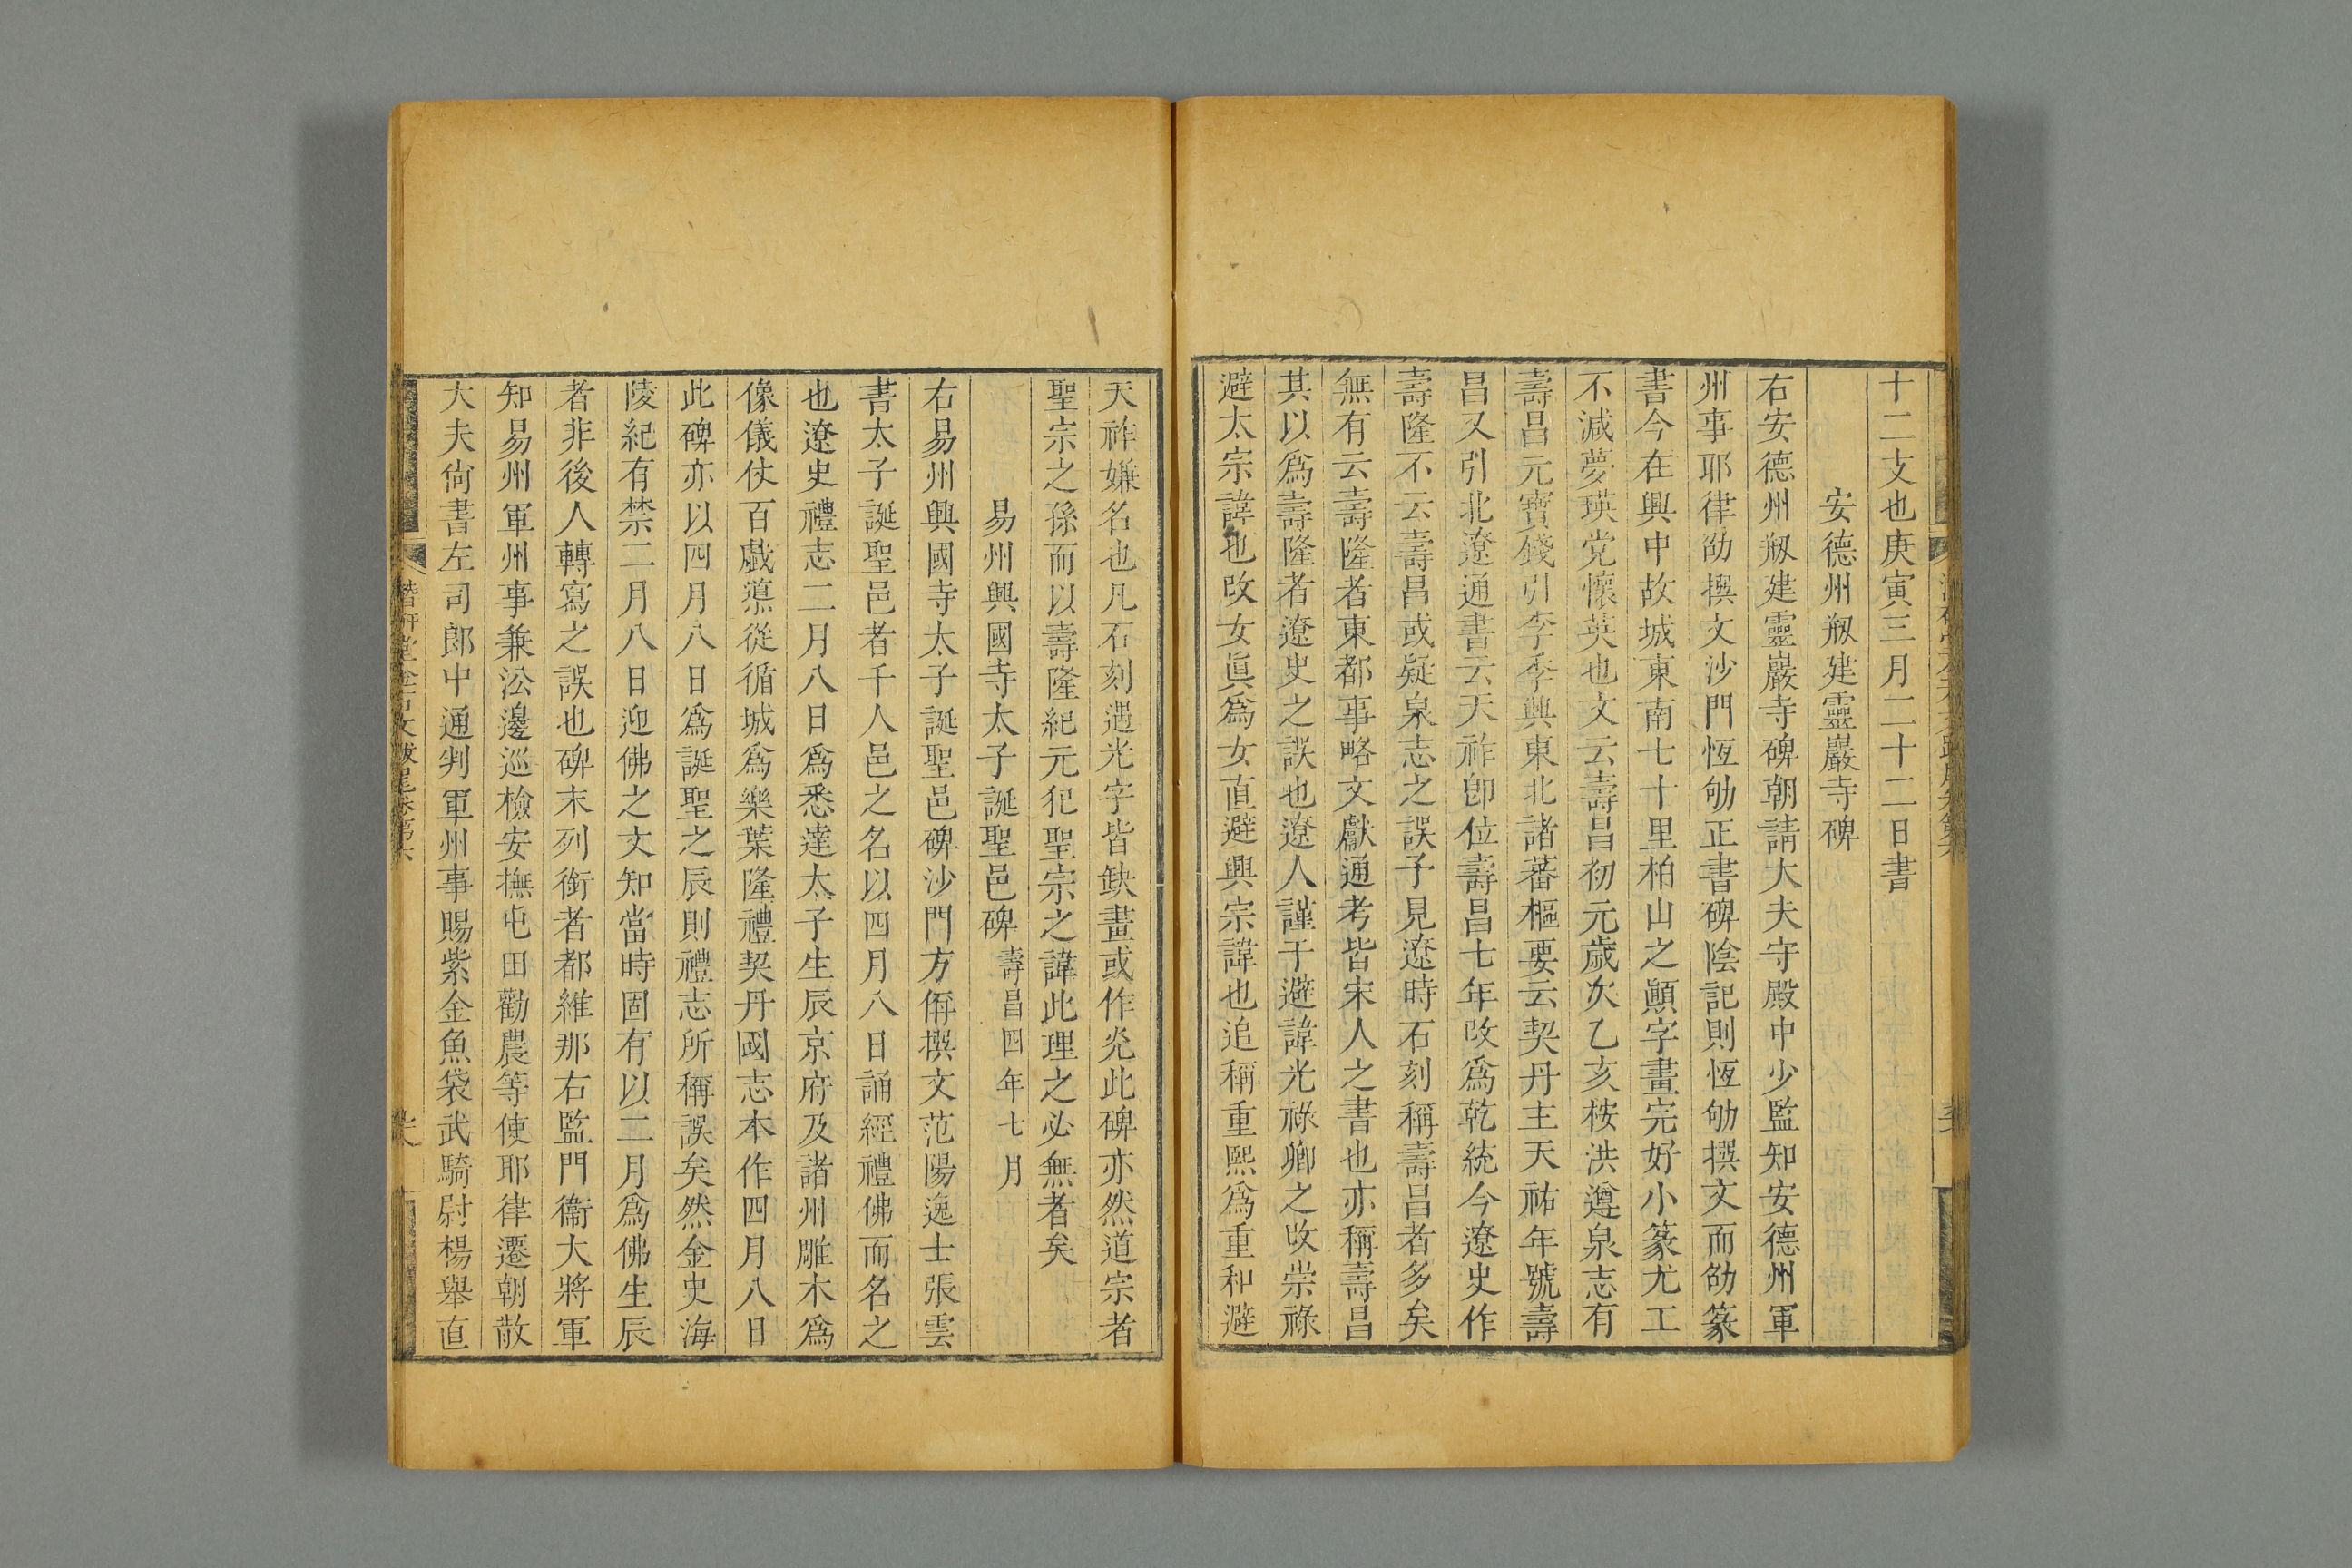 十二支也庚寅三月二十二日書
安德州剏建靈巖寺碑
右安德州剏建靈巖寺碑朝請大夫守殿中少監知安德州軍
州事耶律劭撰文沙門恆劬正書碑陰記則恆劬撰文而劭篆
書今在興中故城東南七十里柏山之顚字畫完好小篆尤工
不減夢瑛党懷英也文云壽昌初元歲次乙亥桉洪遵泉志有
壽昌元寶錢引李季興東北諸蕃樞要云契丹主天祐年號壽
昌又引北遼通書云天祚卽位壽昌七年改爲乾統今遼史作
壽隆不云壽昌或疑泉志之誤予見遼時石刻稱壽昌者多矣
無有云壽隆者東都事略文獻通考皆宋人之書也亦稱壽昌
其以爲壽隆者遼史之誤也遼人謹于避諱光祿卿之改崇祿
避太宗諱也改女眞爲女直避興宗諱也追稱重熙爲重和避
天祚嫌名也凡石刻遇光字皆缺畫或作灮此碑亦然道宗者
聖宗之孫而以壽隆紀元犯聖宗之諱此理之必無者矣
易州興國寺太子誕聖邑碑 壽昌四年七月
右易州興國寺太子誕聖邑碑沙門方偁撰文范陽逸士張雲
書太子誕聖邑者千人邑之名以四月八日誦經禮佛而名之
也遼史禮志二月八日爲悉達太子生辰京府及諸州雕木爲
像儀仗百戲導從循城爲樂葉隆禮契丹國志本作四月八日
此碑亦以四月八日爲誕聖之辰則禮志所稱誤矣然金史海
陵紀有禁二月八日迎佛之文知當時固有以二月爲佛生辰
者非後人轉寫之誤也碑末列銜者都維那右監門衞大將軍
知易州軍州事兼㳂邊巡檢安撫屯田勸農等使耶律遷朝散
大夫尙書左司郞中通判軍州事賜紫金魚袋武騎尉楊舉直
潛硏堂金石文跋尾卷第六